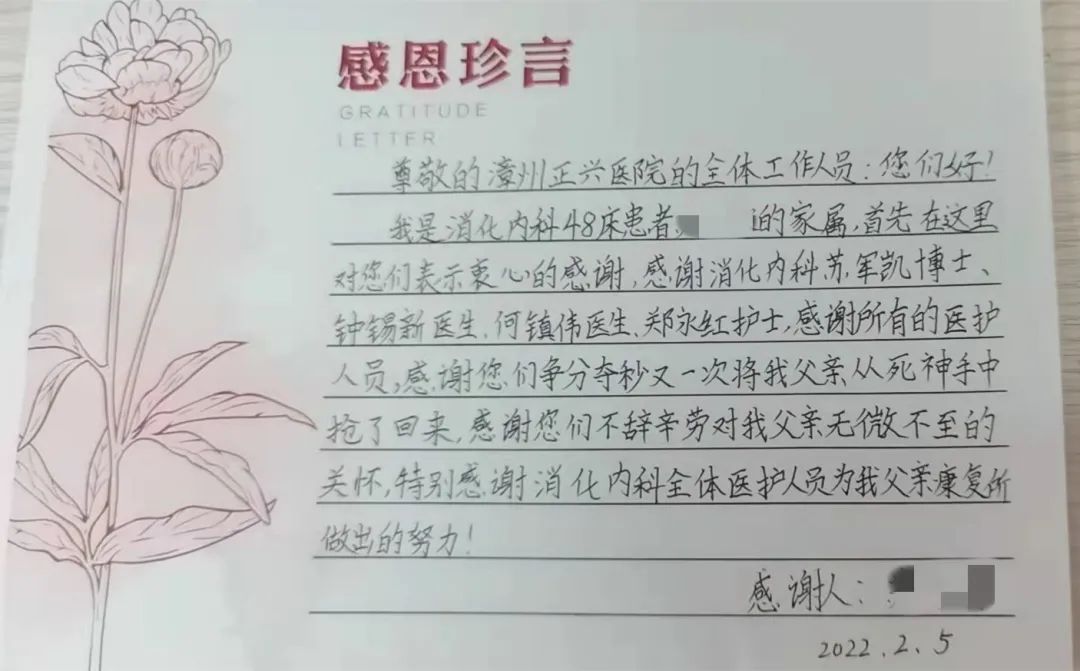 感恩珍言
GRATITUDE
LETTER
尊敬的漳州正兴医院的全体工作人员：您们好！
我是消化内科48床患者 的家属，首先在这里
对您们表示衷心的感谢，感谢消化内科苏军凯博士、
钟锡新医生、何镇伟医生、郑永红护士，感谢所有的医护
人员，感谢您们争分夺秒又一次将我父亲从死神手中
抢了回来，感谢您们不辞辛劳对我父亲无微不至的
关怀，特别感谢消化内科全体医护人员为我父亲康复所
做出的努力！
感谢人：
2022.2.5